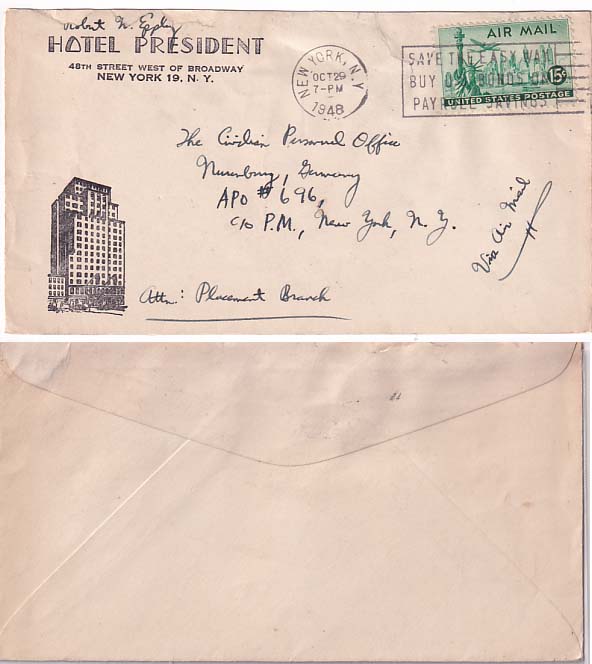 Robert N. Eppley
HOTEL PRESIDENT
48TH STREET WEST OF BROADWAY
NEW YORK 19, N. Y.
NEW YORK, N.Y.
OCT 29
7-PM
1948
SAVE THE EASY WAY
BUY BONDS ON
PAYROLL SAVINGS
AIR MAIL
15¢
UNITED STATES POSTAGE
The Civilian Personnel Office
Nurenburg, Germany
APO # 696,
c/o P.M., New York, N. Y.
Via Air Mail
Attn: Placement Branch